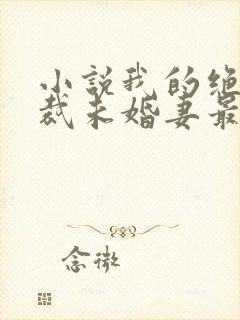 小說我的绝
裁未婚妻最
念微